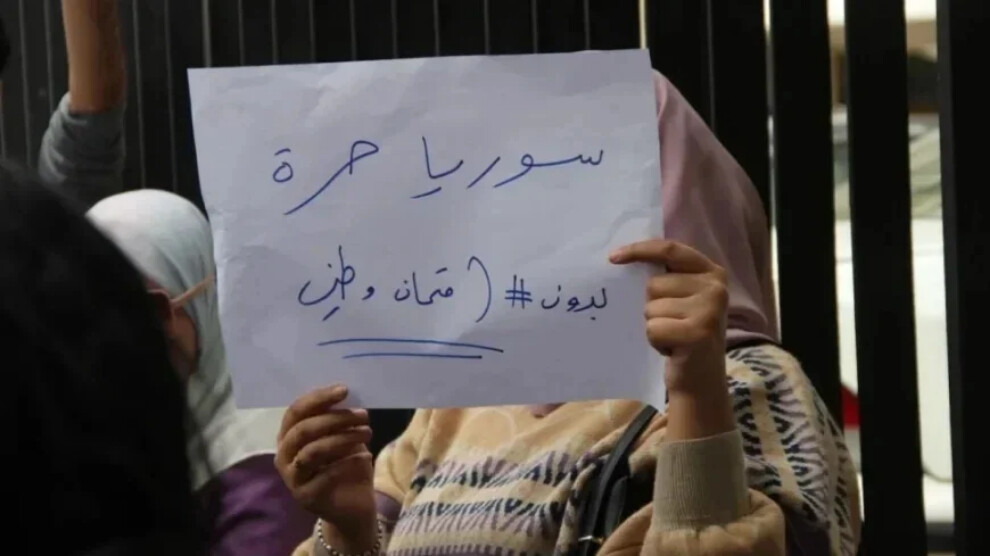 سوريا حرة
بدون # وطني